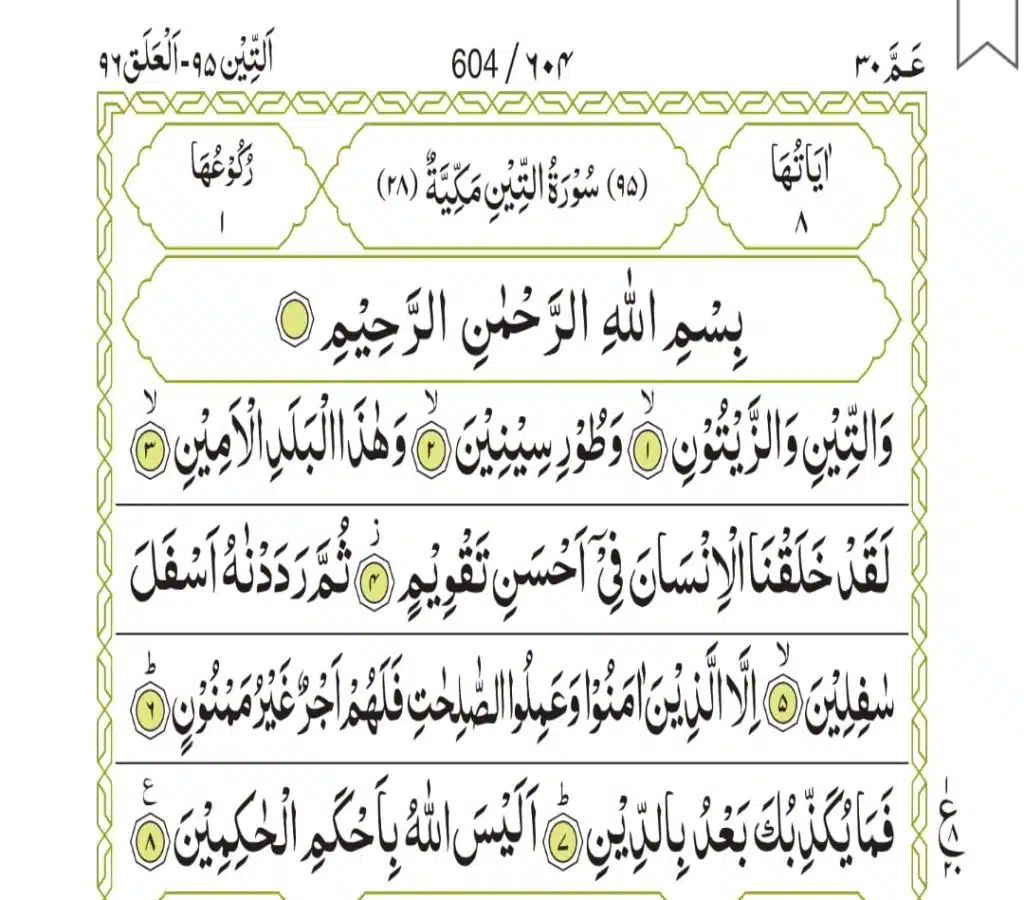 عَمَّ ٣٠
604 / ۶۰۴
اَلتِّيْن ٩٥-اَلْعَلَق ٩٦
اٰيَاتُهَا
٨
(٩٥) سُوْرَةُ التِّيْنِ مَكِّيَّةٌ (٢٨)
رُكُوْعُهَا
١
بِسْمِ اللّٰهِ الرَّحْمٰنِ الرَّحِيْمِ
وَالتِّيْنِ وَالزَّيْتُوْنِ ۙ﴿۱﴾ وَطُوْرِ سِيْنِيْنَ ۙ﴿۲﴾ وَهٰذَا الْبَلَدِ الْاَمِيْنِ ۙ﴿۳﴾
لَقَدْ خَلَقْنَا الْاِنْسَانَ فِيْۤ اَحْسَنِ تَقْوِيْمٍ ز﴿۴﴾ ثُمَّ رَدَدْنٰهُ اَسْفَلَ
سٰفِلِيْنَ ۙ﴿۵﴾ اِلَّا الَّذِيْنَ اٰمَنُوْا وَعَمِلُوا الصّٰلِحٰتِ فَلَهُمْ اَجْرٌ غَيْرُ مَمْنُوْنٍ ؕ﴿۶﴾
فَمَا يُكَذِّبُكَ بَعْدُ بِالدِّيْنِ ؕ﴿۷﴾ اَلَيْسَ اللّٰهُ بِاَحْكَمِ الْحٰكِمِيْنَ ع﴿۸﴾
ع
٨
٢٠